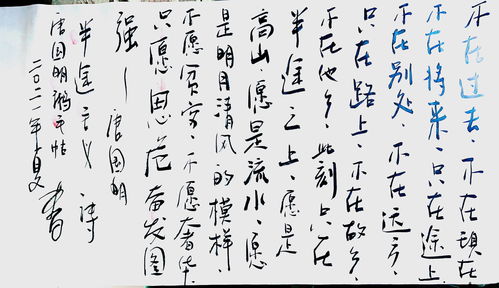 不在过去、不在现在
不在将来、只在途上
不在别处、不在远方、
只在路上、不在故乡、
不在他乡、此刻只在
半途之上、愿是
高山、愿是流水、愿
是明月清风的模样、
不愿贫穷、不愿奢华
只愿思危奋发图
强——唐国明
半途主义诗
唐国明鹅毛帖
二〇二一年夏